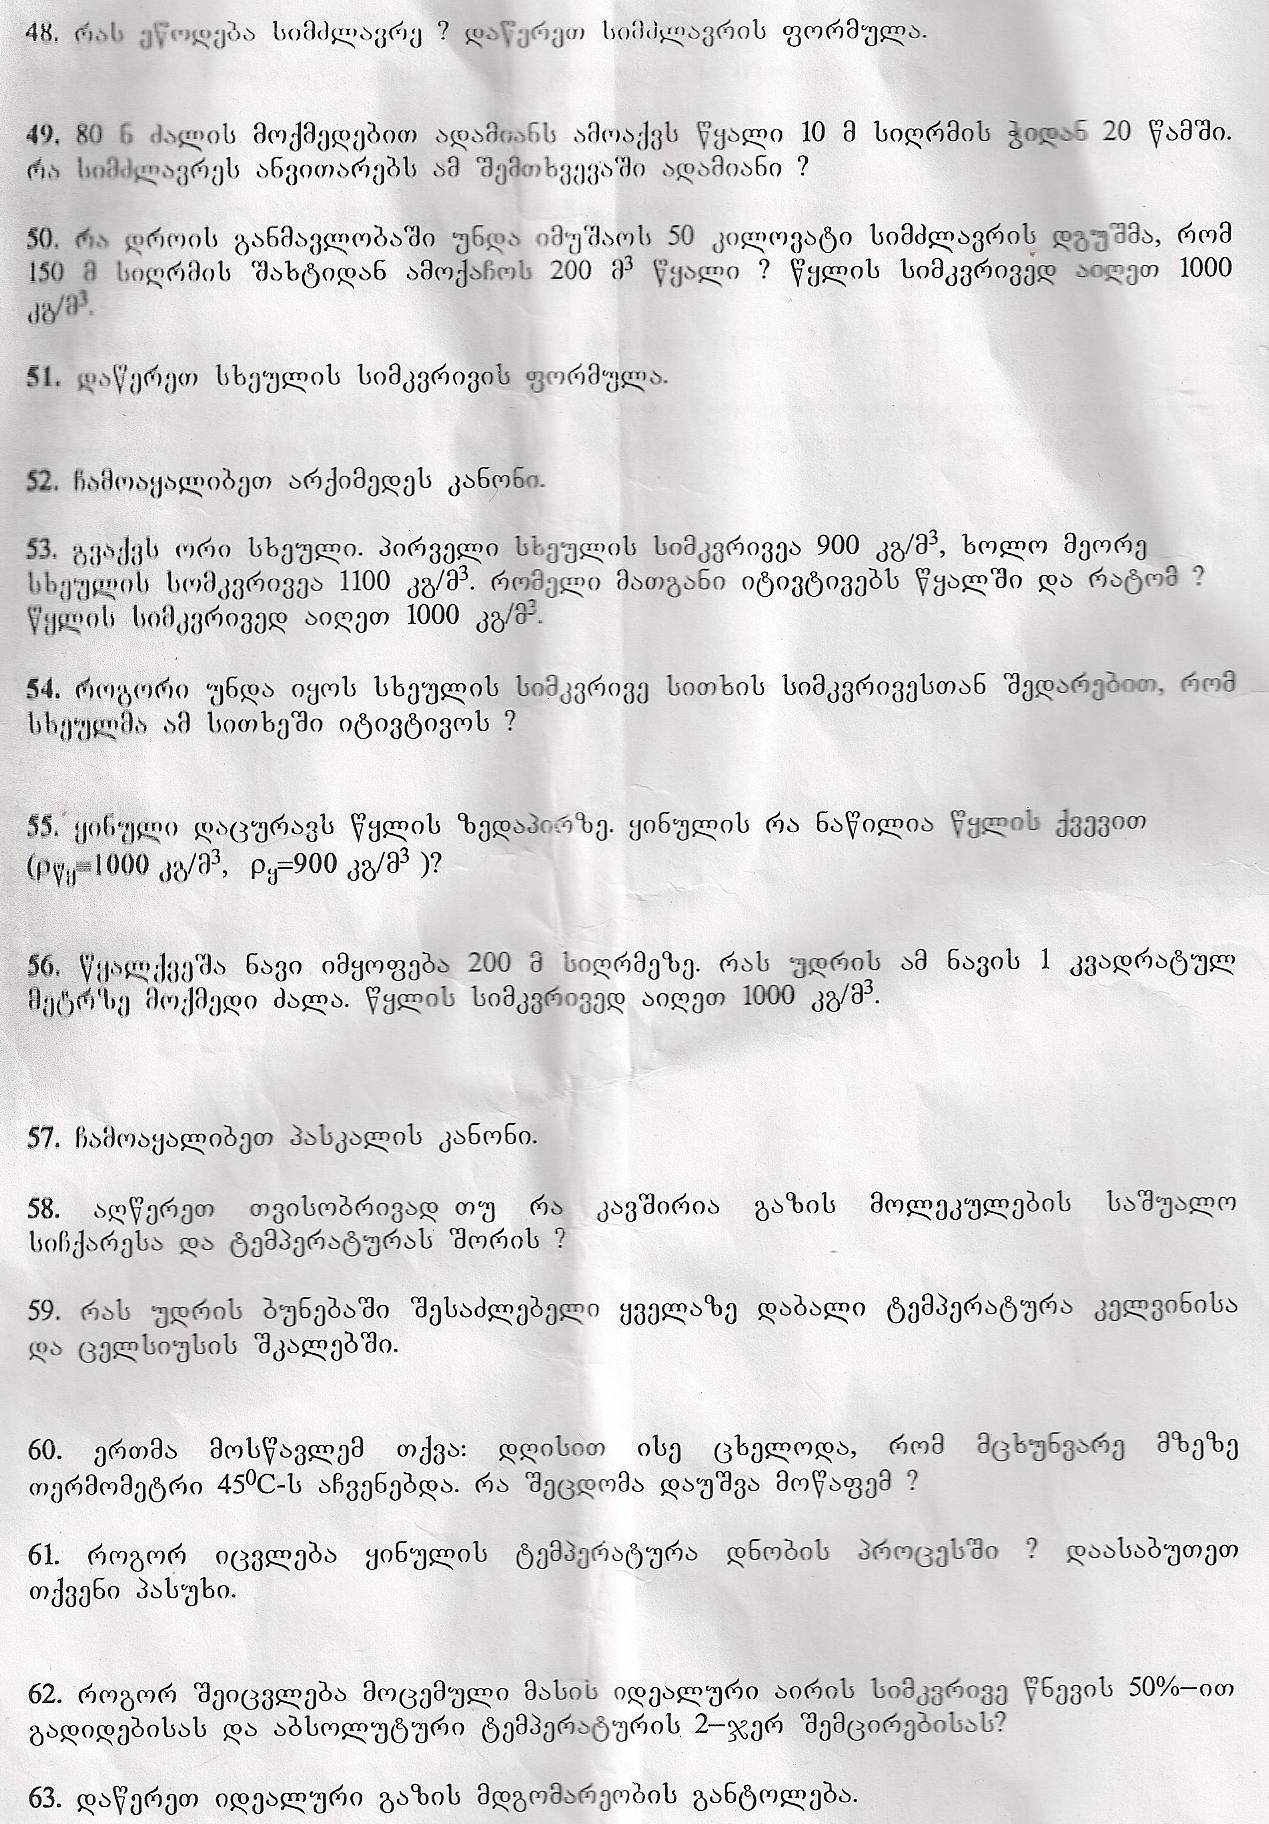 48. რას ეწოდება სიმძლავრე ? დაწერეთ სიმძლავრის ფორმულა.
49. 80 ნ ძალის მოქმედებით ადამიანს ამოაქვს წყალი 10 მ სიღრმის ჭიდან 20 წამში.
რა სიმძლავრეს ანვითარებს ამ შემთხვევაში ადამიანი ?
50. რა დროის განმავლობაში უნდა იმუშაოს 50 კილოვატი სიმძლავრის დგუშმა, რომ
150 მ სიღრმის შახტიდან ამოქაჩოს 200 მ³ წყალი ? წყლის სიმკვრივედ აიღეთ 1000
კგ/მ³.
51. დაწერეთ სხეულის სიმკვრივის ფორმულა.
52. ჩამოაყალიბეთ არქიმედეს კანონი.
53. გვაქვს ორი სხეული. პირველი სხეულის სიმკვრივეა 900 კგ/მ³, ხოლო მეორე
სხეულის სომკვრივეა 1100 კგ/მ³. რომელი მათგანი იტივტივებს წყალში და რატომ ?
წყლის სიმკვრივედ აიღეთ 1000 კგ/მ³.
54. როგორი უნდა იყოს სხეულის სიმკვრივე სითხის სიმკვრივესთან შედარებით, რომ
სხეულმა ამ სითხეში იტივტივოს ?
55. ყინული დაცურავს წყლის ზედაპირზე. ყინულის რა ნაწილია წყლის ქვევით
(ρწყ=1000 კგ/მ³, ρყ=900 კგ/მ³ )?
56. წყალქვეშა ნავი იმყოფება 200 მ სიღრმეზე. რას უდრის ამ ნავის 1 კვადრატულ
მეტრზე მოქმედი ძალა. წყლის სიმკვრივედ აიღეთ 1000 კგ/მ³.
57. ჩამოაყალიბეთ პასკალის კანონი.
58. აღწერეთ თვისობრივად თუ რა კავშირია გაზის მოლეკულების საშუალო
სიჩქარესა და ტემპერატურას შორის ?
59. რას უდრის ბუნებაში შესაძლებელი ყველაზე დაბალი ტემპერატურა კელვინისა
და ცელსიუსის შკალებში.
60. ერთმა მოსწავლემ თქვა: დღისით ისე ცხელოდა, რომ მცხუნვარე მზეზე
თერმომეტრი 45⁰C-ს აჩვენებდა. რა შეცდომა დაუშვა მოწაფემ ?
61. როგორ იცვლება ყინულის ტემპერატურა დნობის პროცესში ? დაასაბუთეთ
თქვენი პასუხი.
62. როგორ შეიცვლება მოცემული მასის იდეალური აირის სიმკვრივე წნევის 50%–ით
გადიდებისას და აბსოლუტური ტემპერატურის 2–ჯერ შემცირებისას?
63. დაწერეთ იდეალური გაზის მდგომარეობის განტოლება.